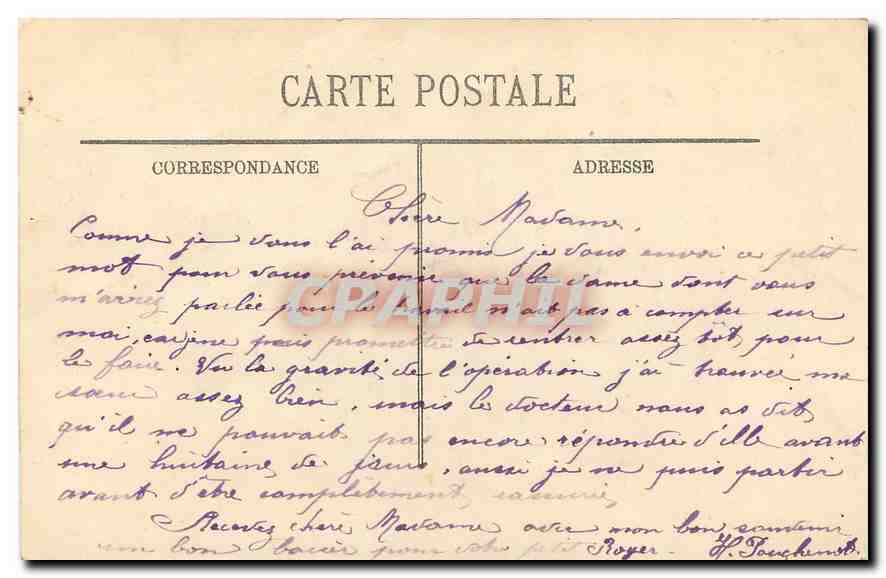 CARTE POSTALE
CORRESPONDANCE
ADRESSE
Chère Madame,
Comme je vous l'ai promis je vous envoi ce petit
mot pour vous prévenir que la dame dont vous
m'aviez parlée pour le travail n'ait pas à compter sur
moi, car je ne puis promettre de rentrer assez tôt pour
le faire. Vu la gravité de l'opération j'ai trouvée ma
sœur assez bien, mais le docteur nous as dit,
qu'il ne pouvait pas encore répondre d'elle avant
une huitaine de jours, aussi je ne puis partir
avant d'être complètement rassurée,
Recevez chère Madame avec mon bon souvenir
un bon baiser pour votre petit Royer. H.
CPAPHIL